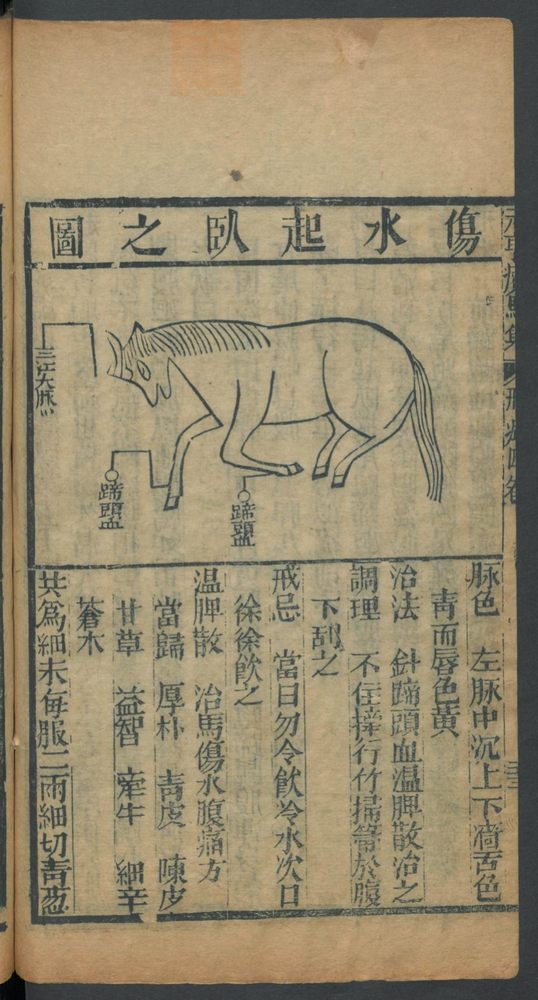 傷水起臥之圖
三江大脉
蹄𥁕
蹄𥁕
脉色　左脉中沉上下濇舌色
青而唇色黃
治法　針蹄頭血溫脾散治之
調理　不住擇行竹掃箒於腹
下刮之
戒忌　當日勿令飲冷水次日
徐徐飲之
温脾散　治馬傷水腹痛方
當歸　厚朴　青皮　陳皮
甘草　益智　牽牛　細辛
蒼术
共為細末每服二兩細切青葱